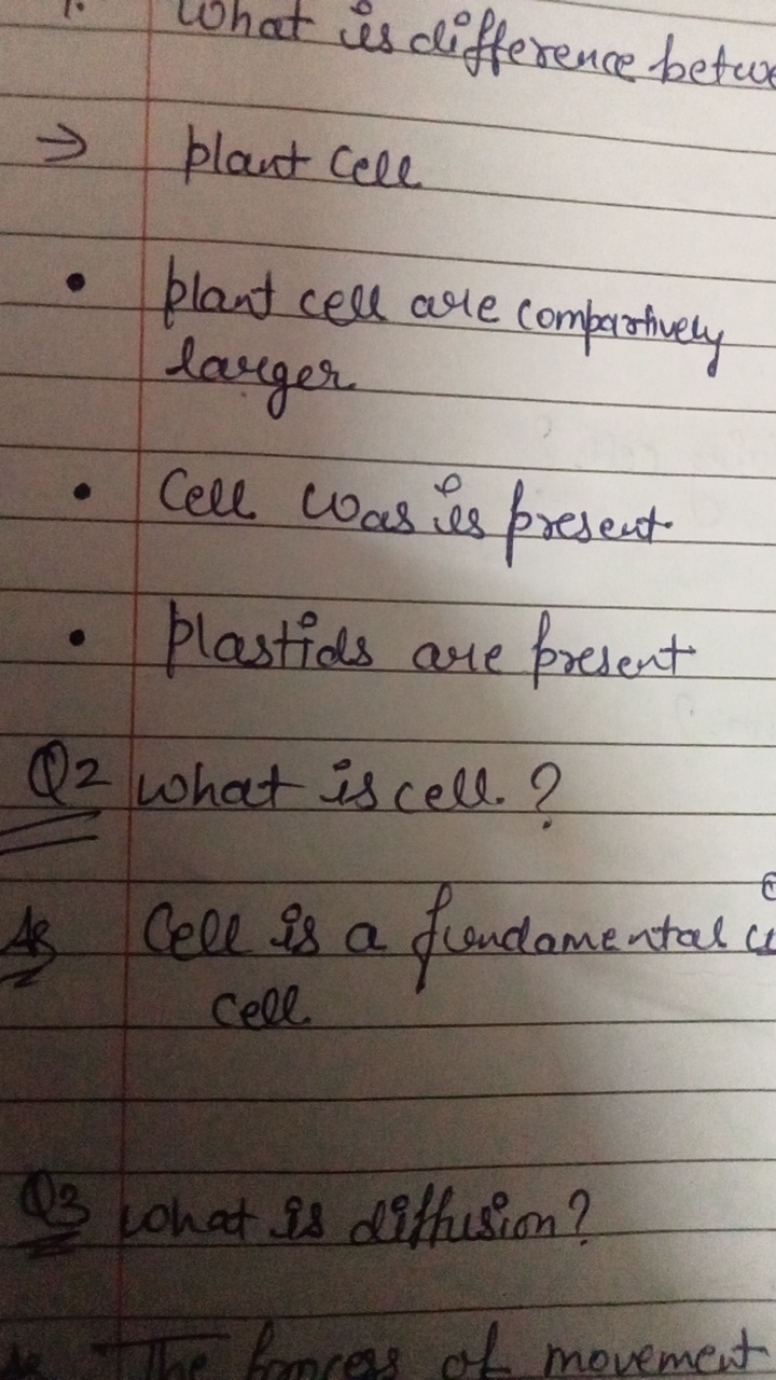 1. What is difference
→ plant cell
• plant cell are compartively
larger
• Cell was is present
• plastids are present
Q2 what is cell. ?
As Cell is a fundamental
cell.
Q3 what is diffusion?
The of movement